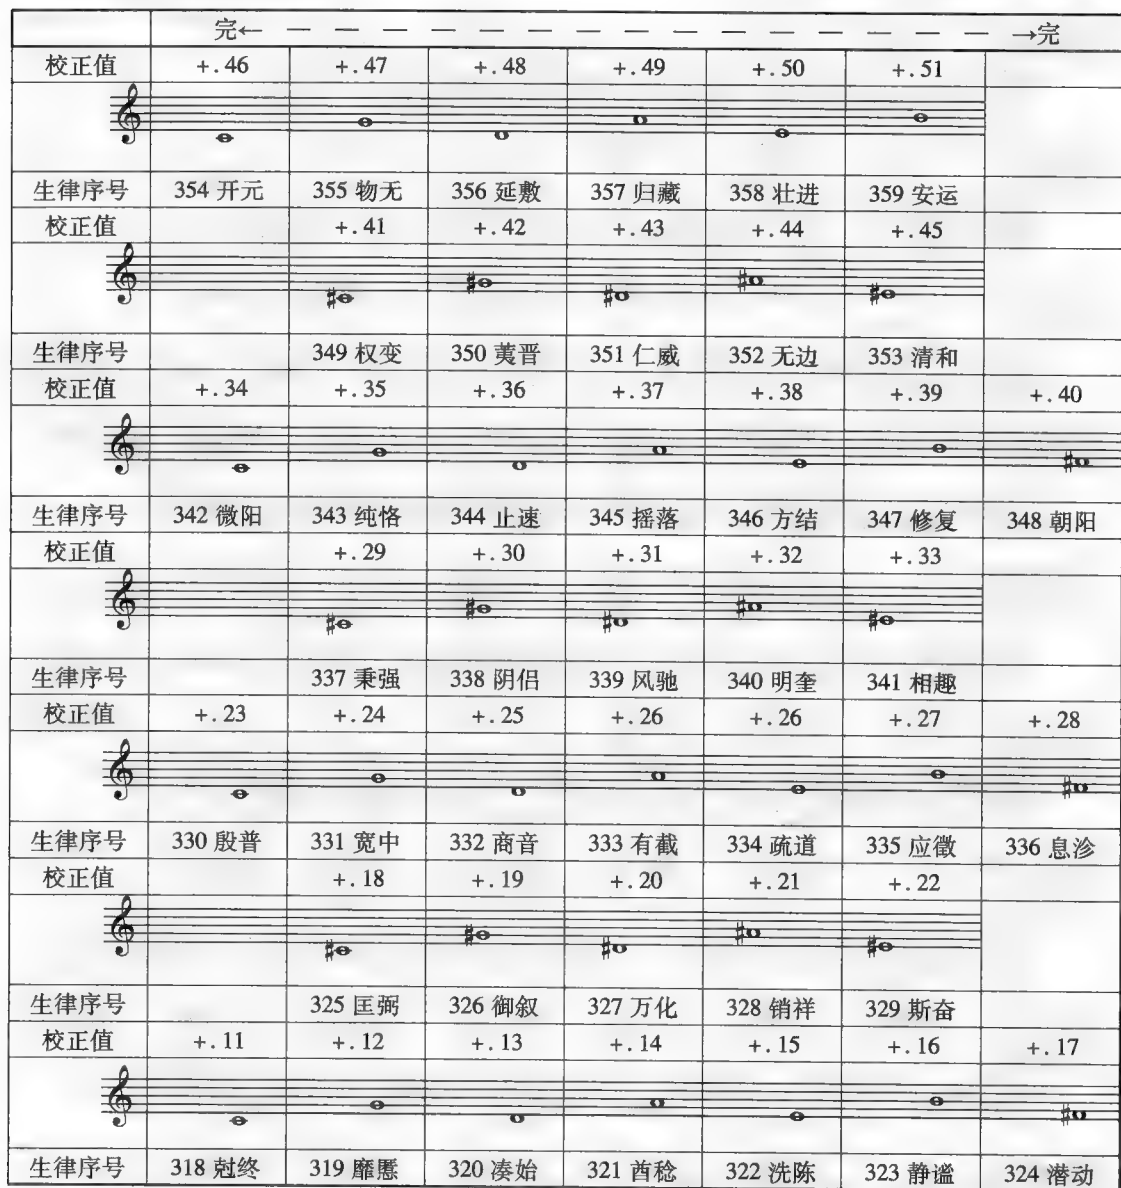 完← — — — — — — — — — — — — — — — →完
校正值 +.46 +.47 +.48 +.49 +.50 +.51
生律序号 354 开元 355 物无 356 延敷 357 归藏 358 壮进 359 安运
校正值 +.41 +.42 +.43 +.44 +.45
生律序号 349 权变 350 荑晋 351 仁威 352 无边 353 清和
校正值 +.34 +.35 +.36 +.37 +.38 +.39 +.40
生律序号 342 微阳 343 纯恪 344 止速 345 摇落 346 方结 347 修复 348 朝阳
校正值 +.29 +.30 +.31 +.32 +.33
生律序号 337 秉强 338 阴侣 339 风驰 340 明奎 341 相趣
校正值 +.23 +.24 +.25 +.26 +.26 +.27 +.28
生律序号 330 殷普 331 宽中 332 商音 333 有截 334 疏道 335 应徵 336 息沴
校正值 +.18 +.19 +.20 +.21 +.22
生律序号 325 匡弼 326 御叙 327 万化 328 销祥 329 斯奋
校正值 +.11 +.12 +.13 +.14 +.15 +.16 +.17
生律序号 318 兙终 319 靡慝 320 凑始 321 酋稔 322 洗陈 323 静谧 324 潜动